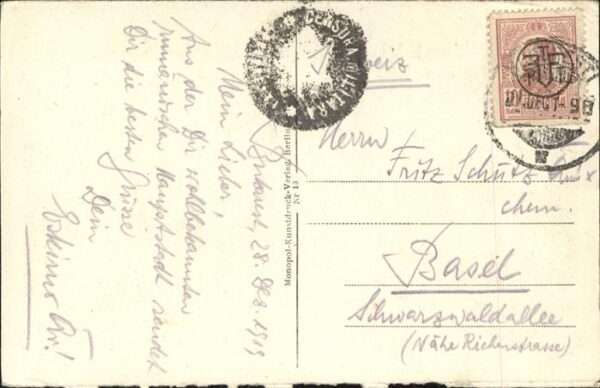 Bukarest, 28. Dez. 1919
Mein Lieber,
Aus der Dir wohlbekannten
rumänischen Hauptstadt sendet
Dir die besten Grüsse
Dein
Eskimo
CENSURA MILITARA
Monopol-Kunstdruck-Verlag Berlin
Nr 18
Schweiz
Herrn
Fritz Schütz
chem.
Basel
Schwarzwaldallee
(Nähe Riehenstrasse)